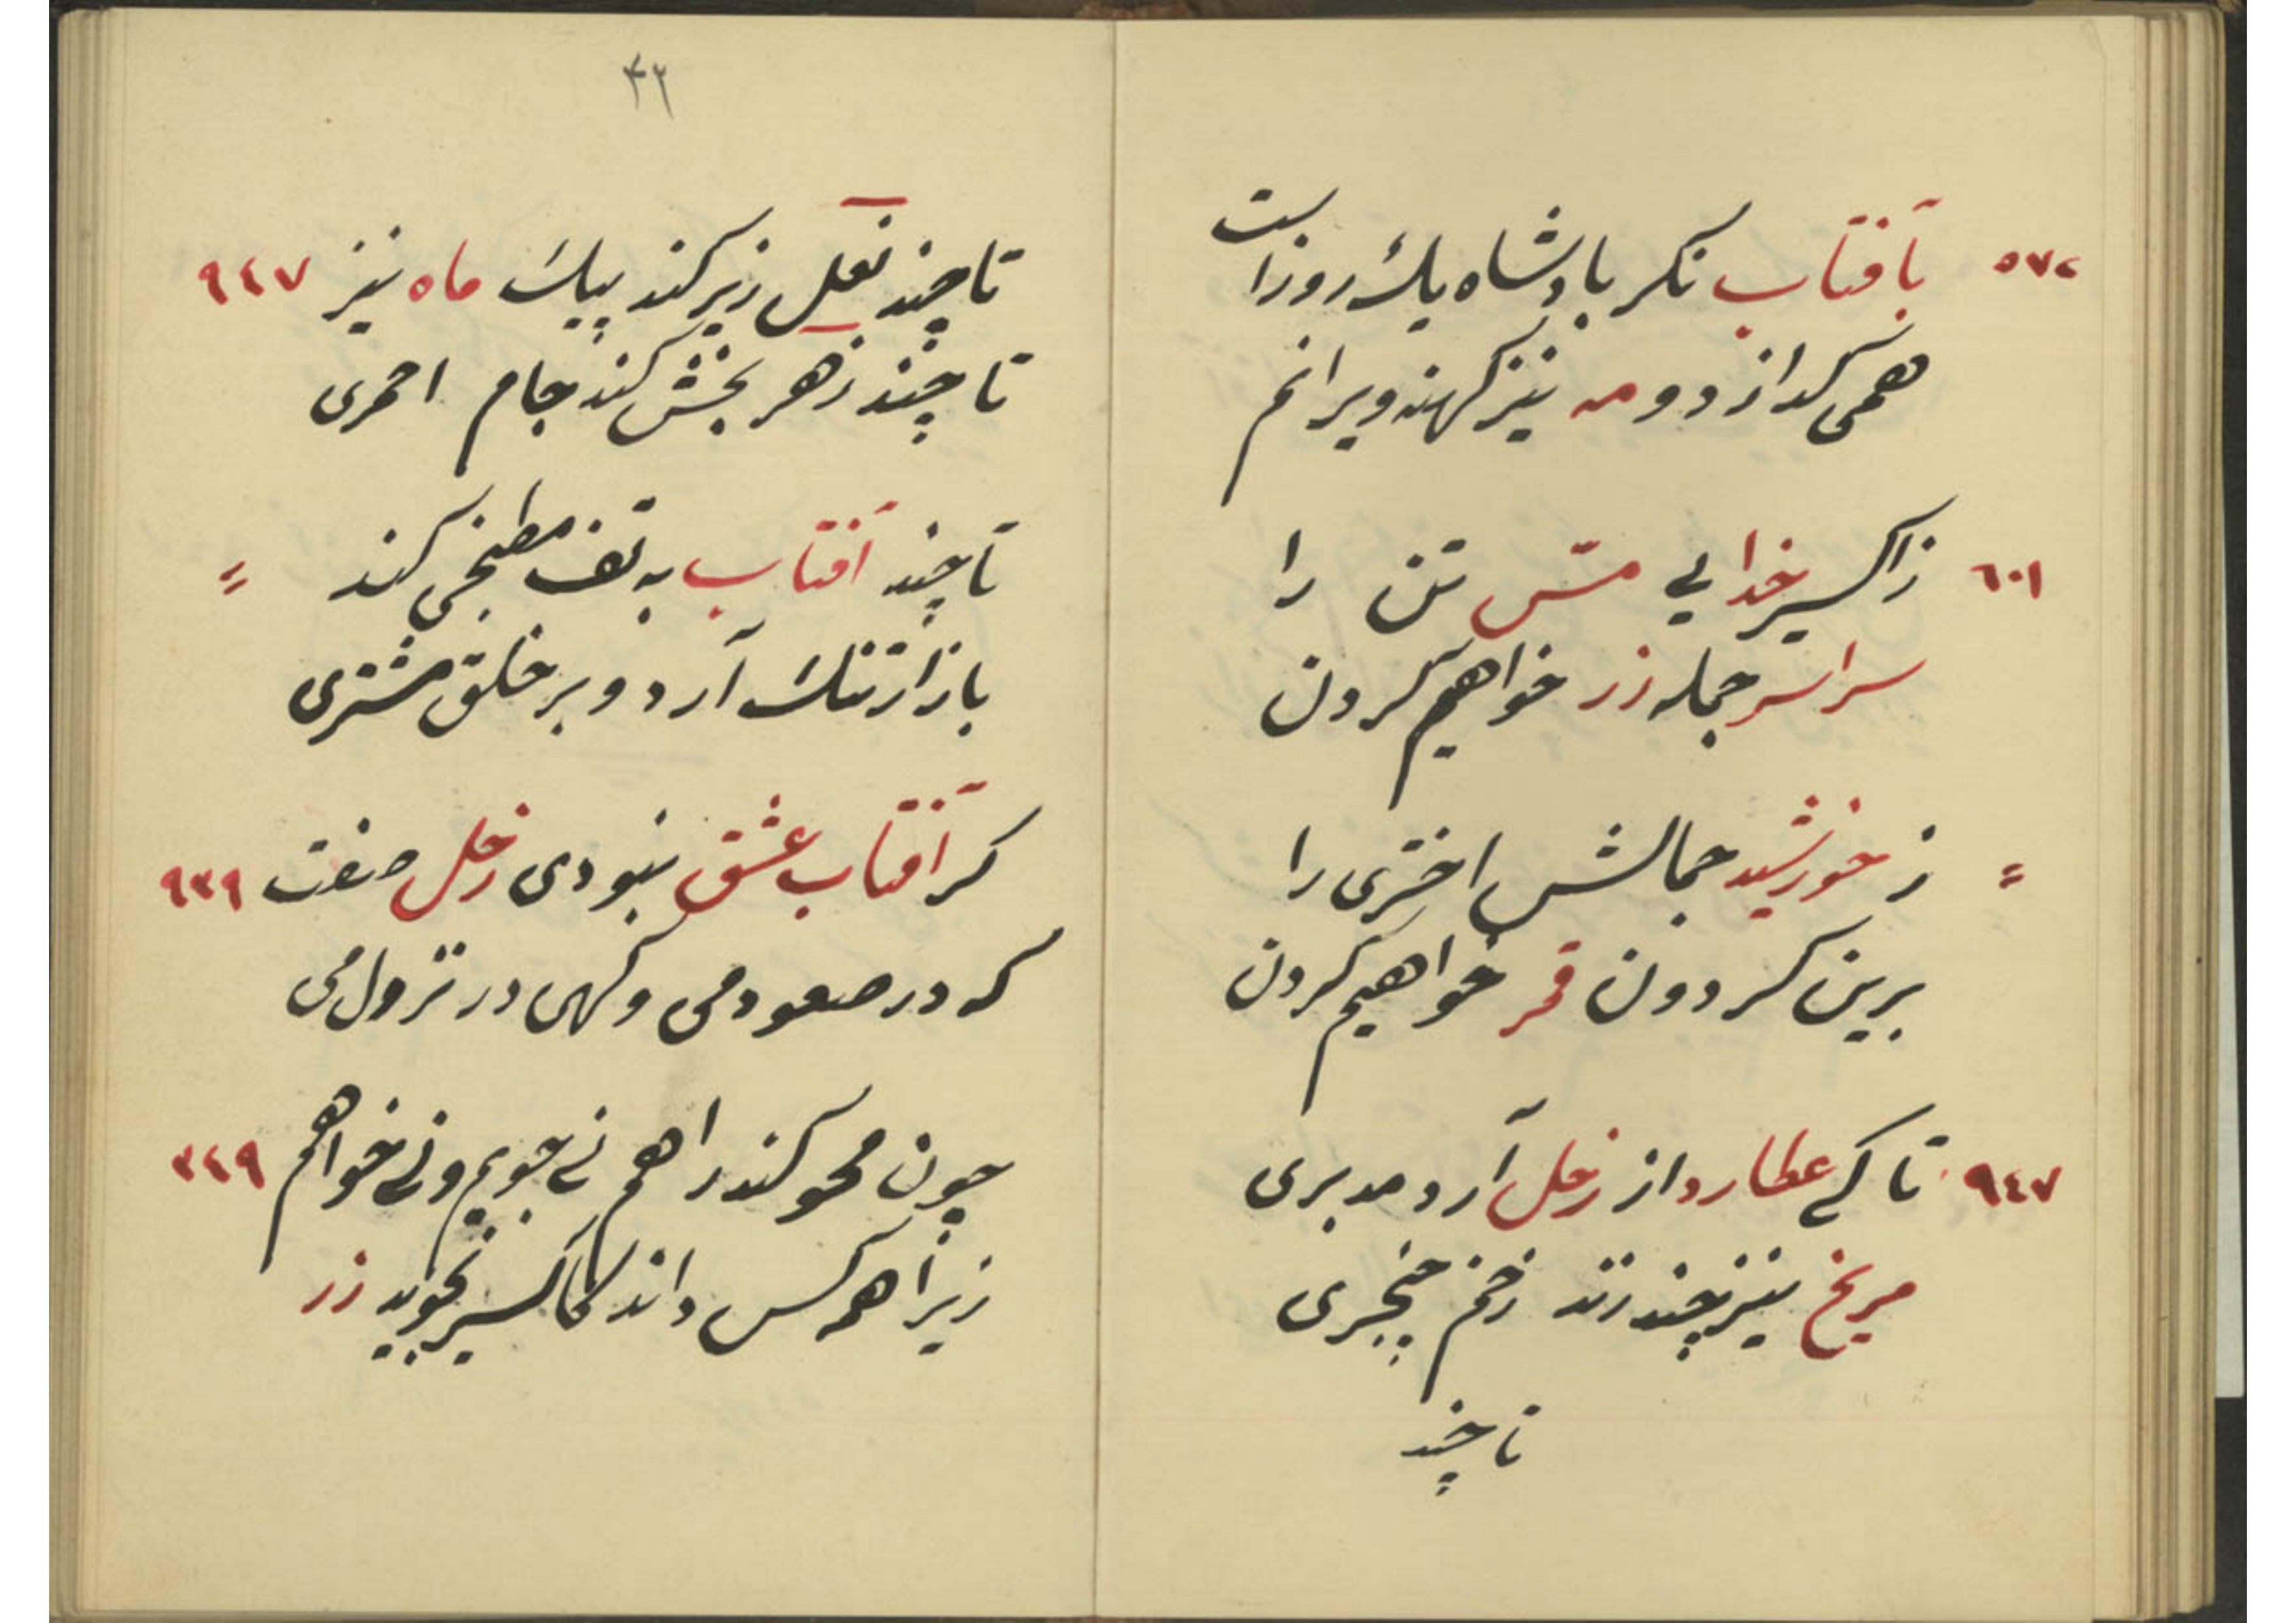 ٥٧٤ بآفتاب نکر پادشاه یک روزاست
همی کدازد و مه نیز کهنه ویرانم
٦٠١ زاکسیر خدایی مسّ تن را
سراسر جمله زر خواهیم کردن
= ز خورشید جمالش اختری را
برین کردون قمر خواهیم کردن
٩٤٧ تا کی عطارد از زحل آرد مدبری
مریخ نیز چند زند زخم خنجری
تا چند
٤٢
تا چند نعل ریز کند پیک ماه نیز ٩٤٧
تا چند زهر بخش کند جام احمری
تا چند آفتاب به تف مطبخی کند =
بازار تنک آرد و بر خلق مشتری
کر آفتاب عشق نبودی زحل صفت ٩٣٩
که در صعودمی و کهی در نزول می
چون محو کند راهم نی جویم و نی خواهم ٣٤٩
زیرا همه کس داند کاکسیر نجوید زر